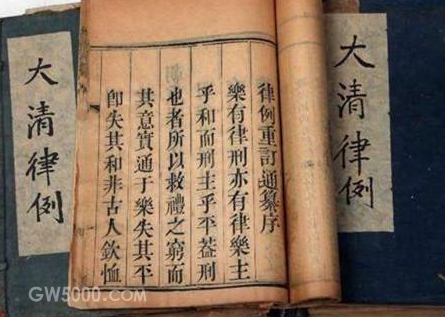 大清律例
律例重訂通纂序
樂有律刑亦有律樂主
乎和而刑主乎平蓋刑
也者所以救禮之窮而
其意實通于樂失其平
卽失其和非古人欽恤
大清律例
GW5000.COM